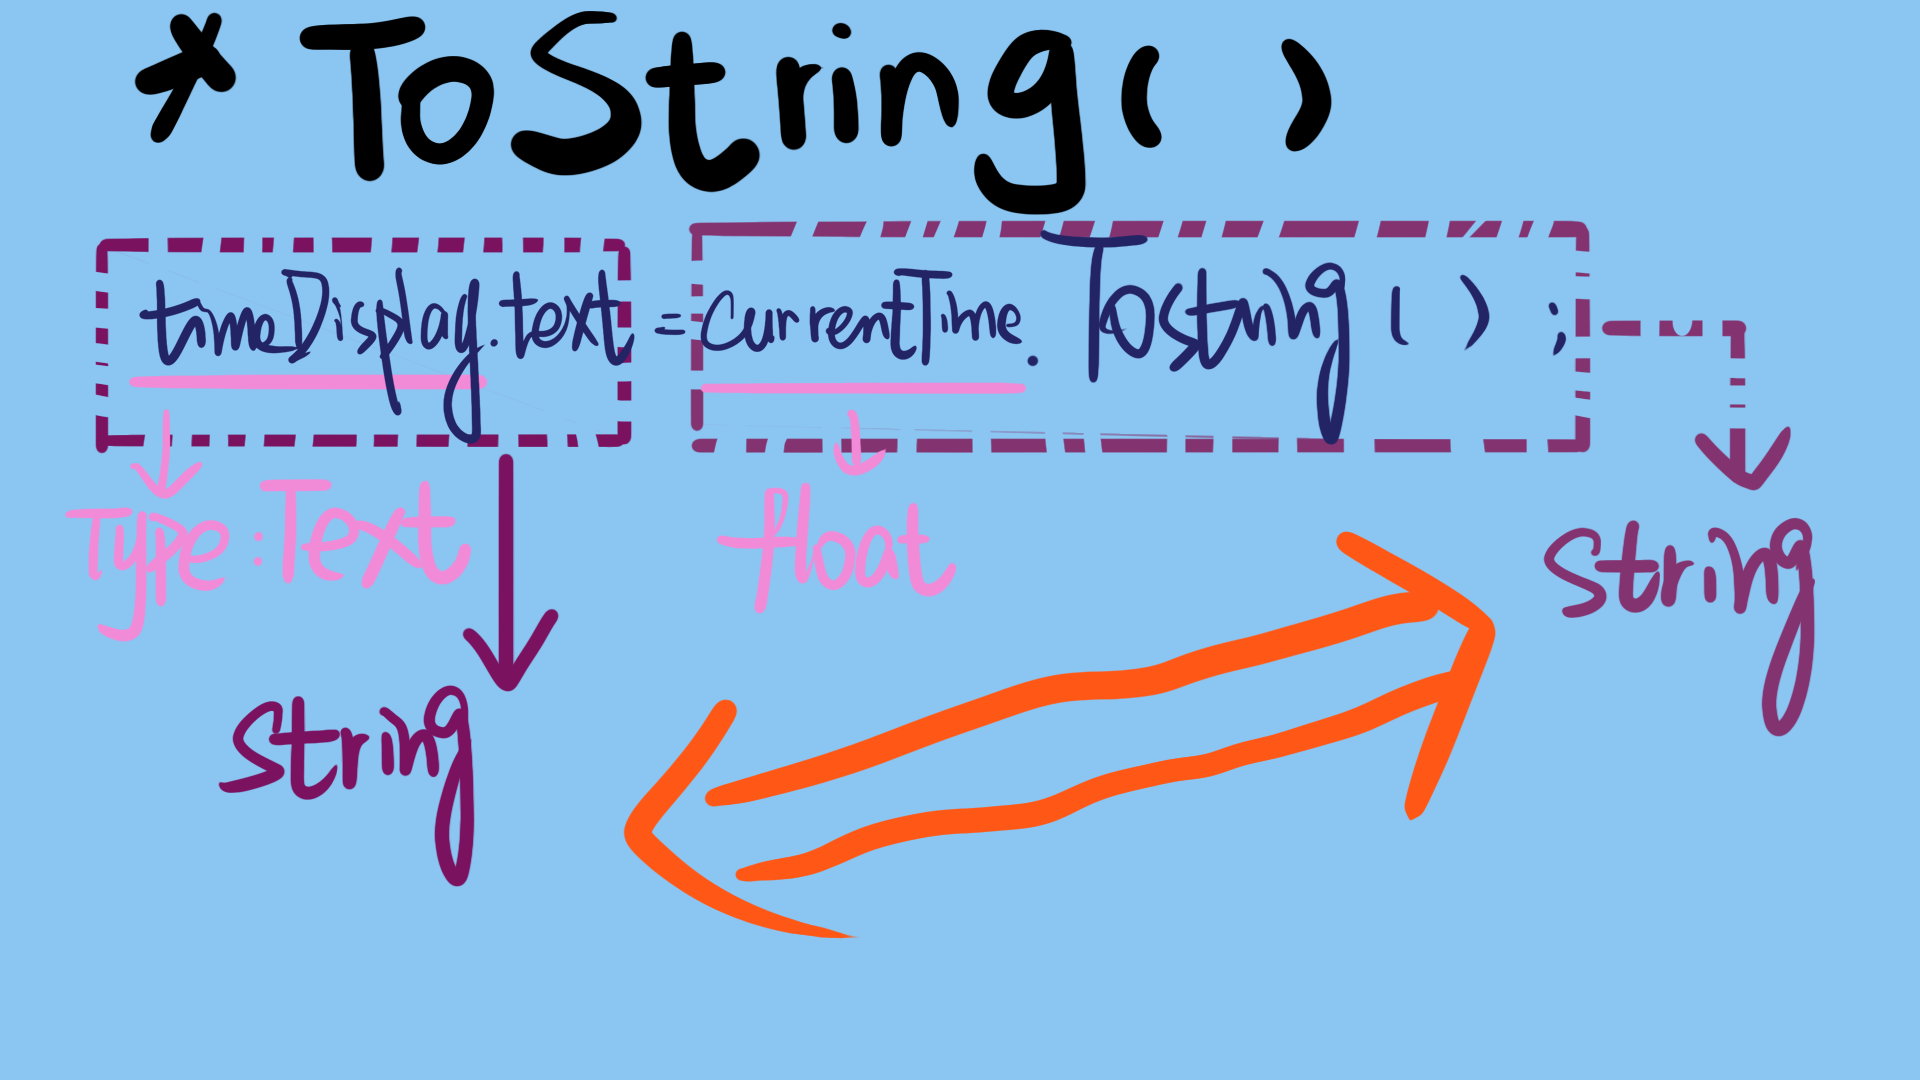 * ToString( )
timeDisplay.text = currentTime. ToString ( ) ;
Type : Text
float
String
String